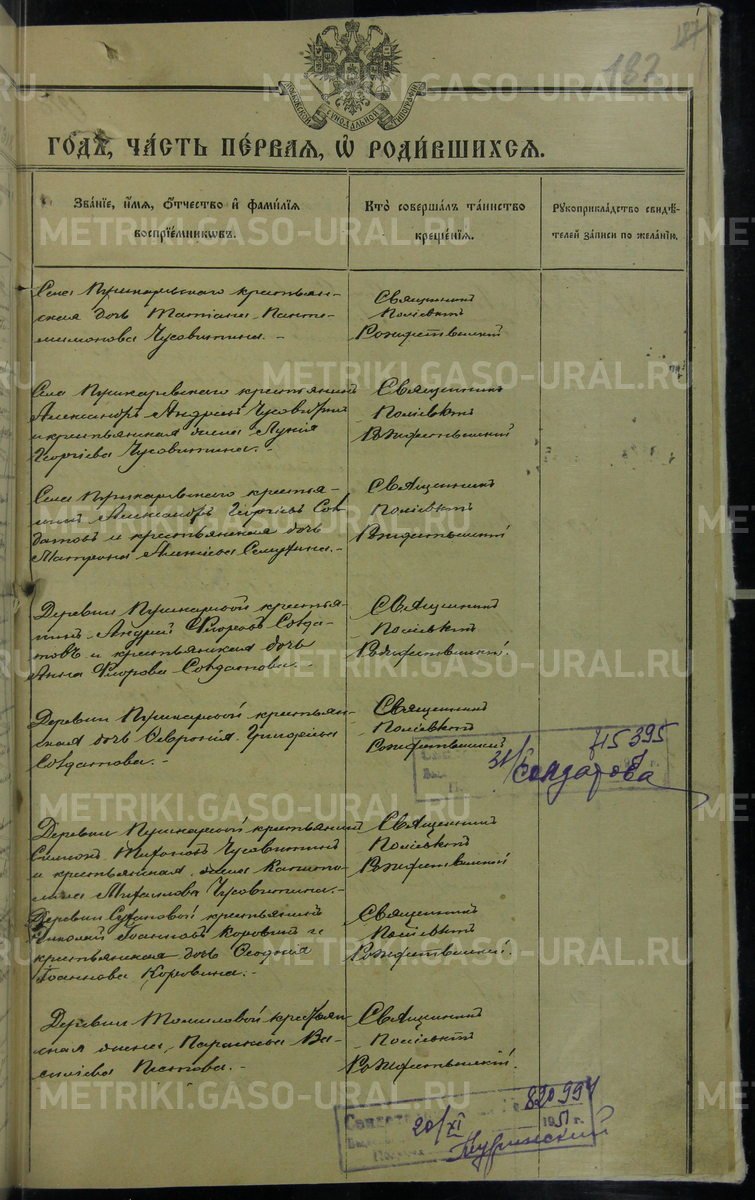 187
МОСКОВСКОЙ СѴНОДАЛЬНОЙ ТИПОГРАФІИ
ГОДѢ, ЧА́СТЬ ПЕ́РВАЯ, Ѡ҆ РОДИ́ВШИХСЯ.
Зва́нїе, и҆́мя, ѻ҆́тчество и҆ фами́лїя
воспрїе́мникѡвъ.
Кто̀ соверша́лъ та́инство
креще́нїя.
Рꙋкоприкла́дство свидѣ́-
телей за́писи по жела́нїю.
Села Пушкаревскаго крестьян-
ская дочь Татіана Панте-
леимонова Чусовитина. -
Священникъ
Поліевктъ
Рождественскій
Села Пушкаревскаго крестьянинъ
Александръ Андреевъ Чусовитинъ
и крестьянская жена Лукія
Георгіева Чусовитина. -
Священникъ
Поліевктъ
Рождественскій
Села Пушкаревскаго крестья-
нинъ Александръ Георгіевъ Сол-
датовъ и крестьянская дочь
Матрона Алексіева
Священникъ
Поліевктъ
Рождественскій
Деревни Пушкаревой крестья-
нинъ Андрей Флоровъ Солда-
товъ и крестьянская дочь
Анна Флорова Солдатова. -
Священникъ
Поліевктъ
Рождественскій.
Деревни Пушкаревой крестьян-
ская дочь Феврония Григорьева
Солдатова. -
Священникъ
Поліевктъ
Рождественскій
415395
31/
Деревни Пушкаревой крестьянинъ
Симеонъ Чусовитинъ
и крестьянская жена Капито-
лина Михаилова Чусовитина. -
Священникъ
Поліевктъ
Рождественскій
Деревни крестьянинъ
Николай Іоанновъ Коровинъ и
крестьянская дочь Феодосія
Іоаннова Коровина. -
Священникъ
Поліевктъ
Рождественскій.
Деревни Томиловой крестьян-
ская жена Параскева Ва-
силіева Пестова. -
Священникъ
Поліевктъ
Рождественскій.
820994
20/XI 1951 г.
METRIKI.GASO-URAL.RU